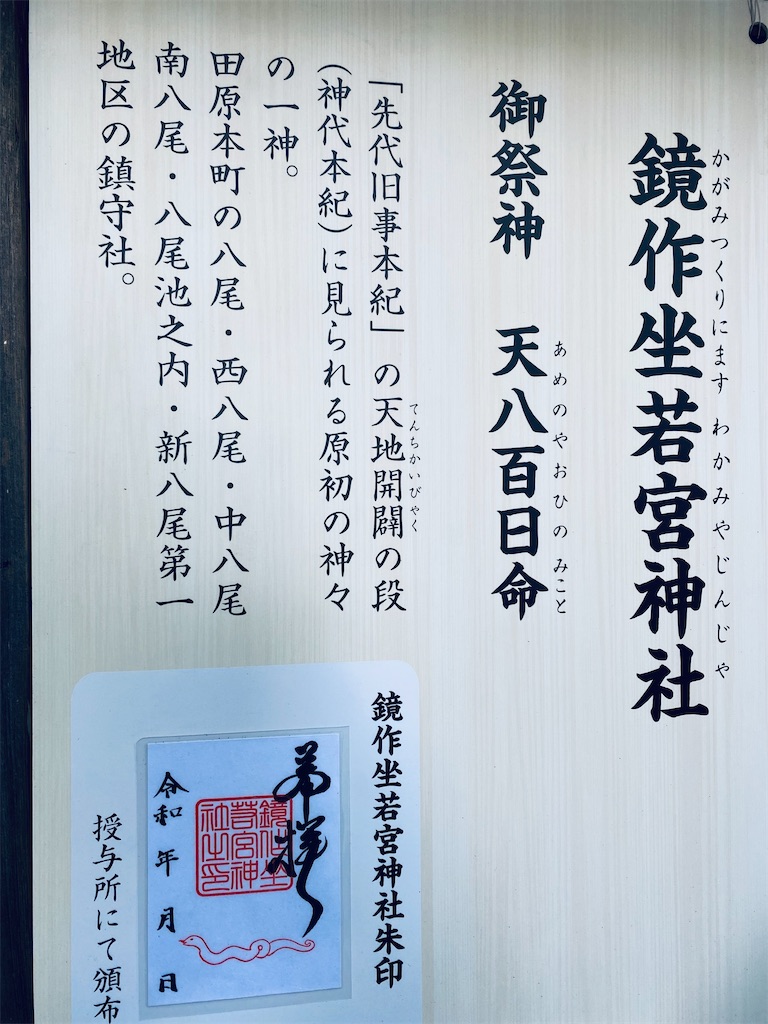 鏡作坐若宮神社
かがみつくりにます わかみやじんじゃ
御祭神 天八百日命
あめのやおひのみこと
「先代旧事本紀」の天地開闢の段
てんちかいびゃく
(神代本紀)に見られる原初の神々
の一神。
田原本町の八尾・西八尾・中八尾
南八尾・八尾池之内・新八尾第一
地区の鎮守社。
鏡作坐若宮神社朱印
奉拝
鏡作坐
若宮神
社之印
令和 年 月 日
授与所にて頒布